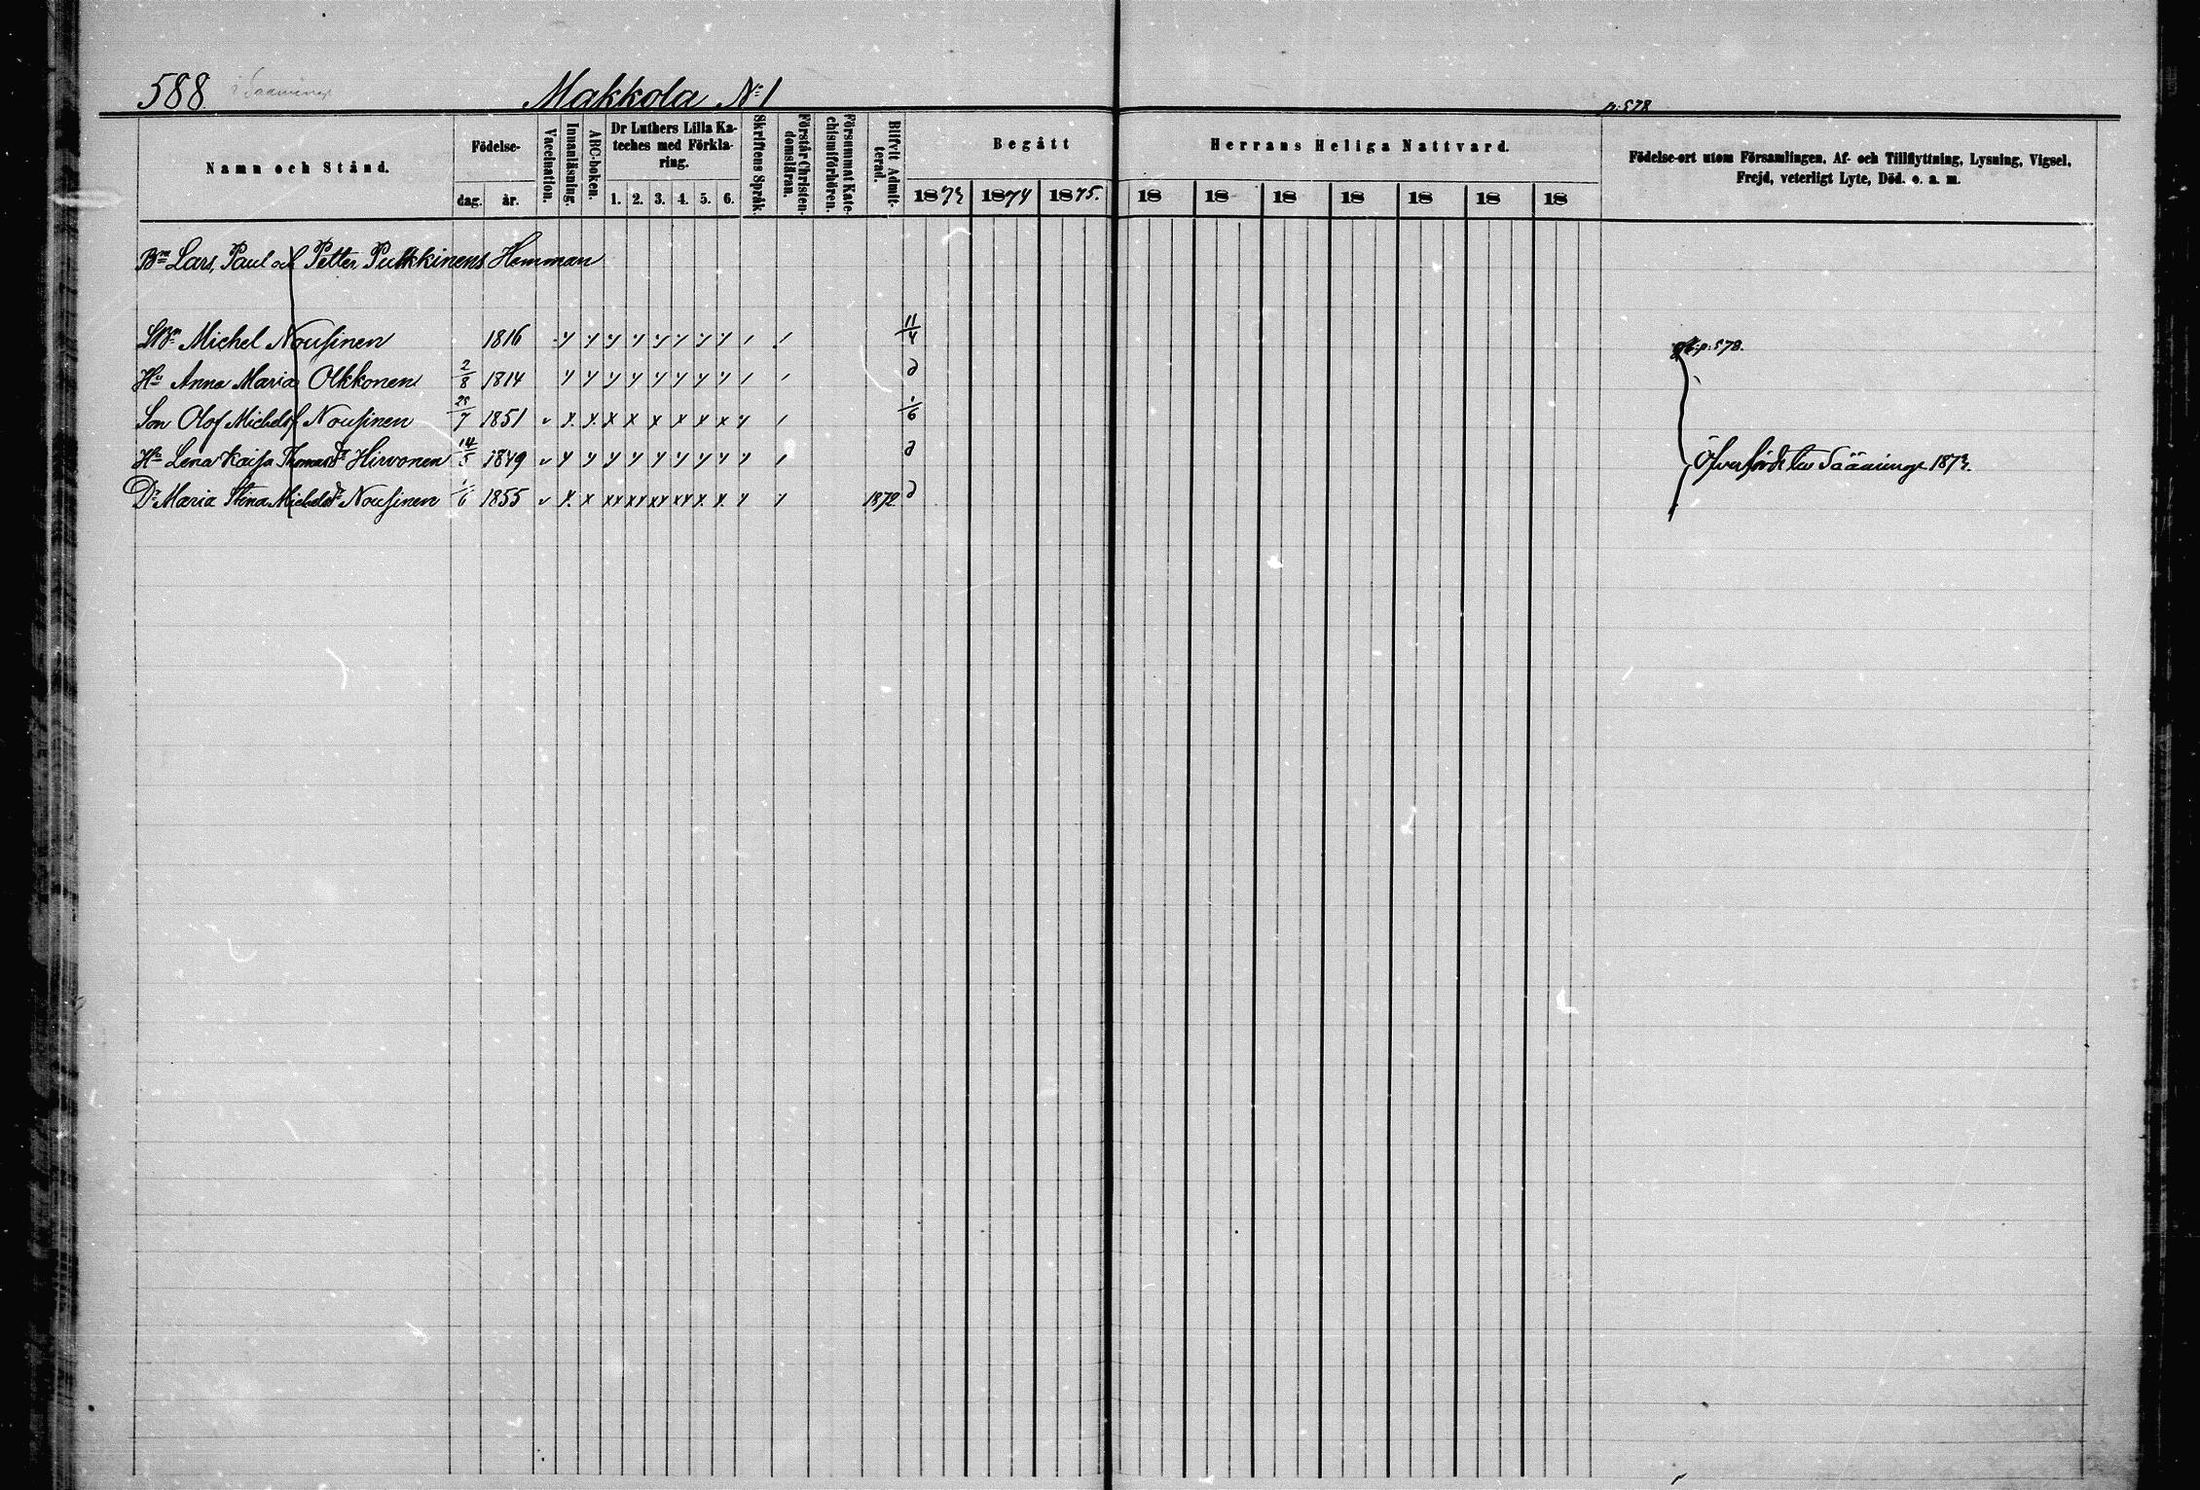 588 i Sääminge Makkola No 1 p. 578
Namn och Stånd.
Födelse-
dag. år.
Vaccination.
Innanläsning.
ABC-boken.
Dr Luthers Lilla Ka-
teches med Förkla-
ring.
1. 2. 3. 4. 5. 6.
Skriftens Språk.
Förstår Christen-
domsläran.
Försummat Kate-
chismiförhören.
Blifvit Admit-
terad.
Begått Herrans Heliga Nattvard.
1873 1874 1875. 18 18 18 18 18 18 18
Födelse-ort utom Församlingen, Af- och Tillflyttning, Lysning, Vigsel,
Frejd, veterligt Lyte, Död. o. a. m.
Bn Lars, Paul och Petter Pulkkinens Hemman
Michel Nousinen 1816 11/4 p. 578.
Hu Anna Maria Olkkonen 2/8 1814
Son Olof Michelsf Nousinen 25/7 1851 1/6
Hu Lena Kaisa Thomasdr Hirvonen 14/5 1849 Öfverförde till Sääminge 1873.
Dr Maria Stina Michelsdr Nousinen 1855 1872